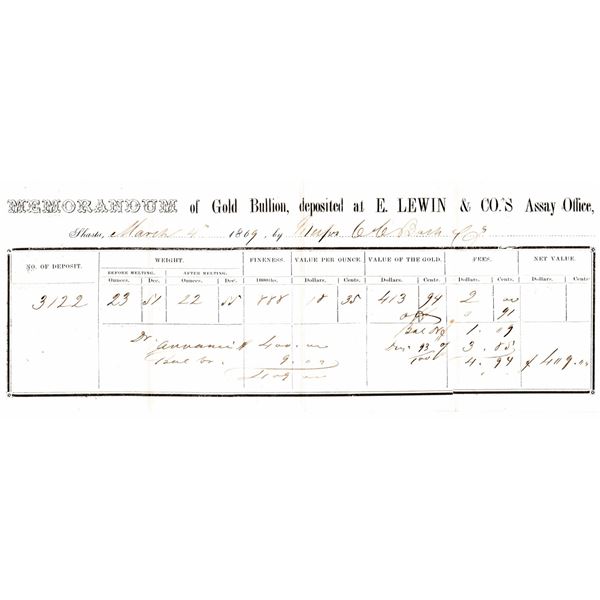 MEMORANDUM of Gold Bullion, deposited at E. LEWIN & CO.'S Assay Office,
Shasta, March 4th 1869, by Messrs C C Bush & Co
NO. OF DEPOSIT. WEIGHT. FINENESS. VALUE PER OUNCE. VALUE OF THE GOLD. FEES. NET VALUE.
BEFORE MELTING. AFTER MELTING.
Ounces. Dec. Ounces. Dec. 1000ths. Dollars. Cents. Dollars. Cents. Dollars. Cents. Dollars. Cents.
3122 23 51 22 55 888 18 35 413 94 2 00
91
Dr Bal 1.09
advance 400.00 93 3.85
Bal 9.00 100 4.94 $409.00
409 00